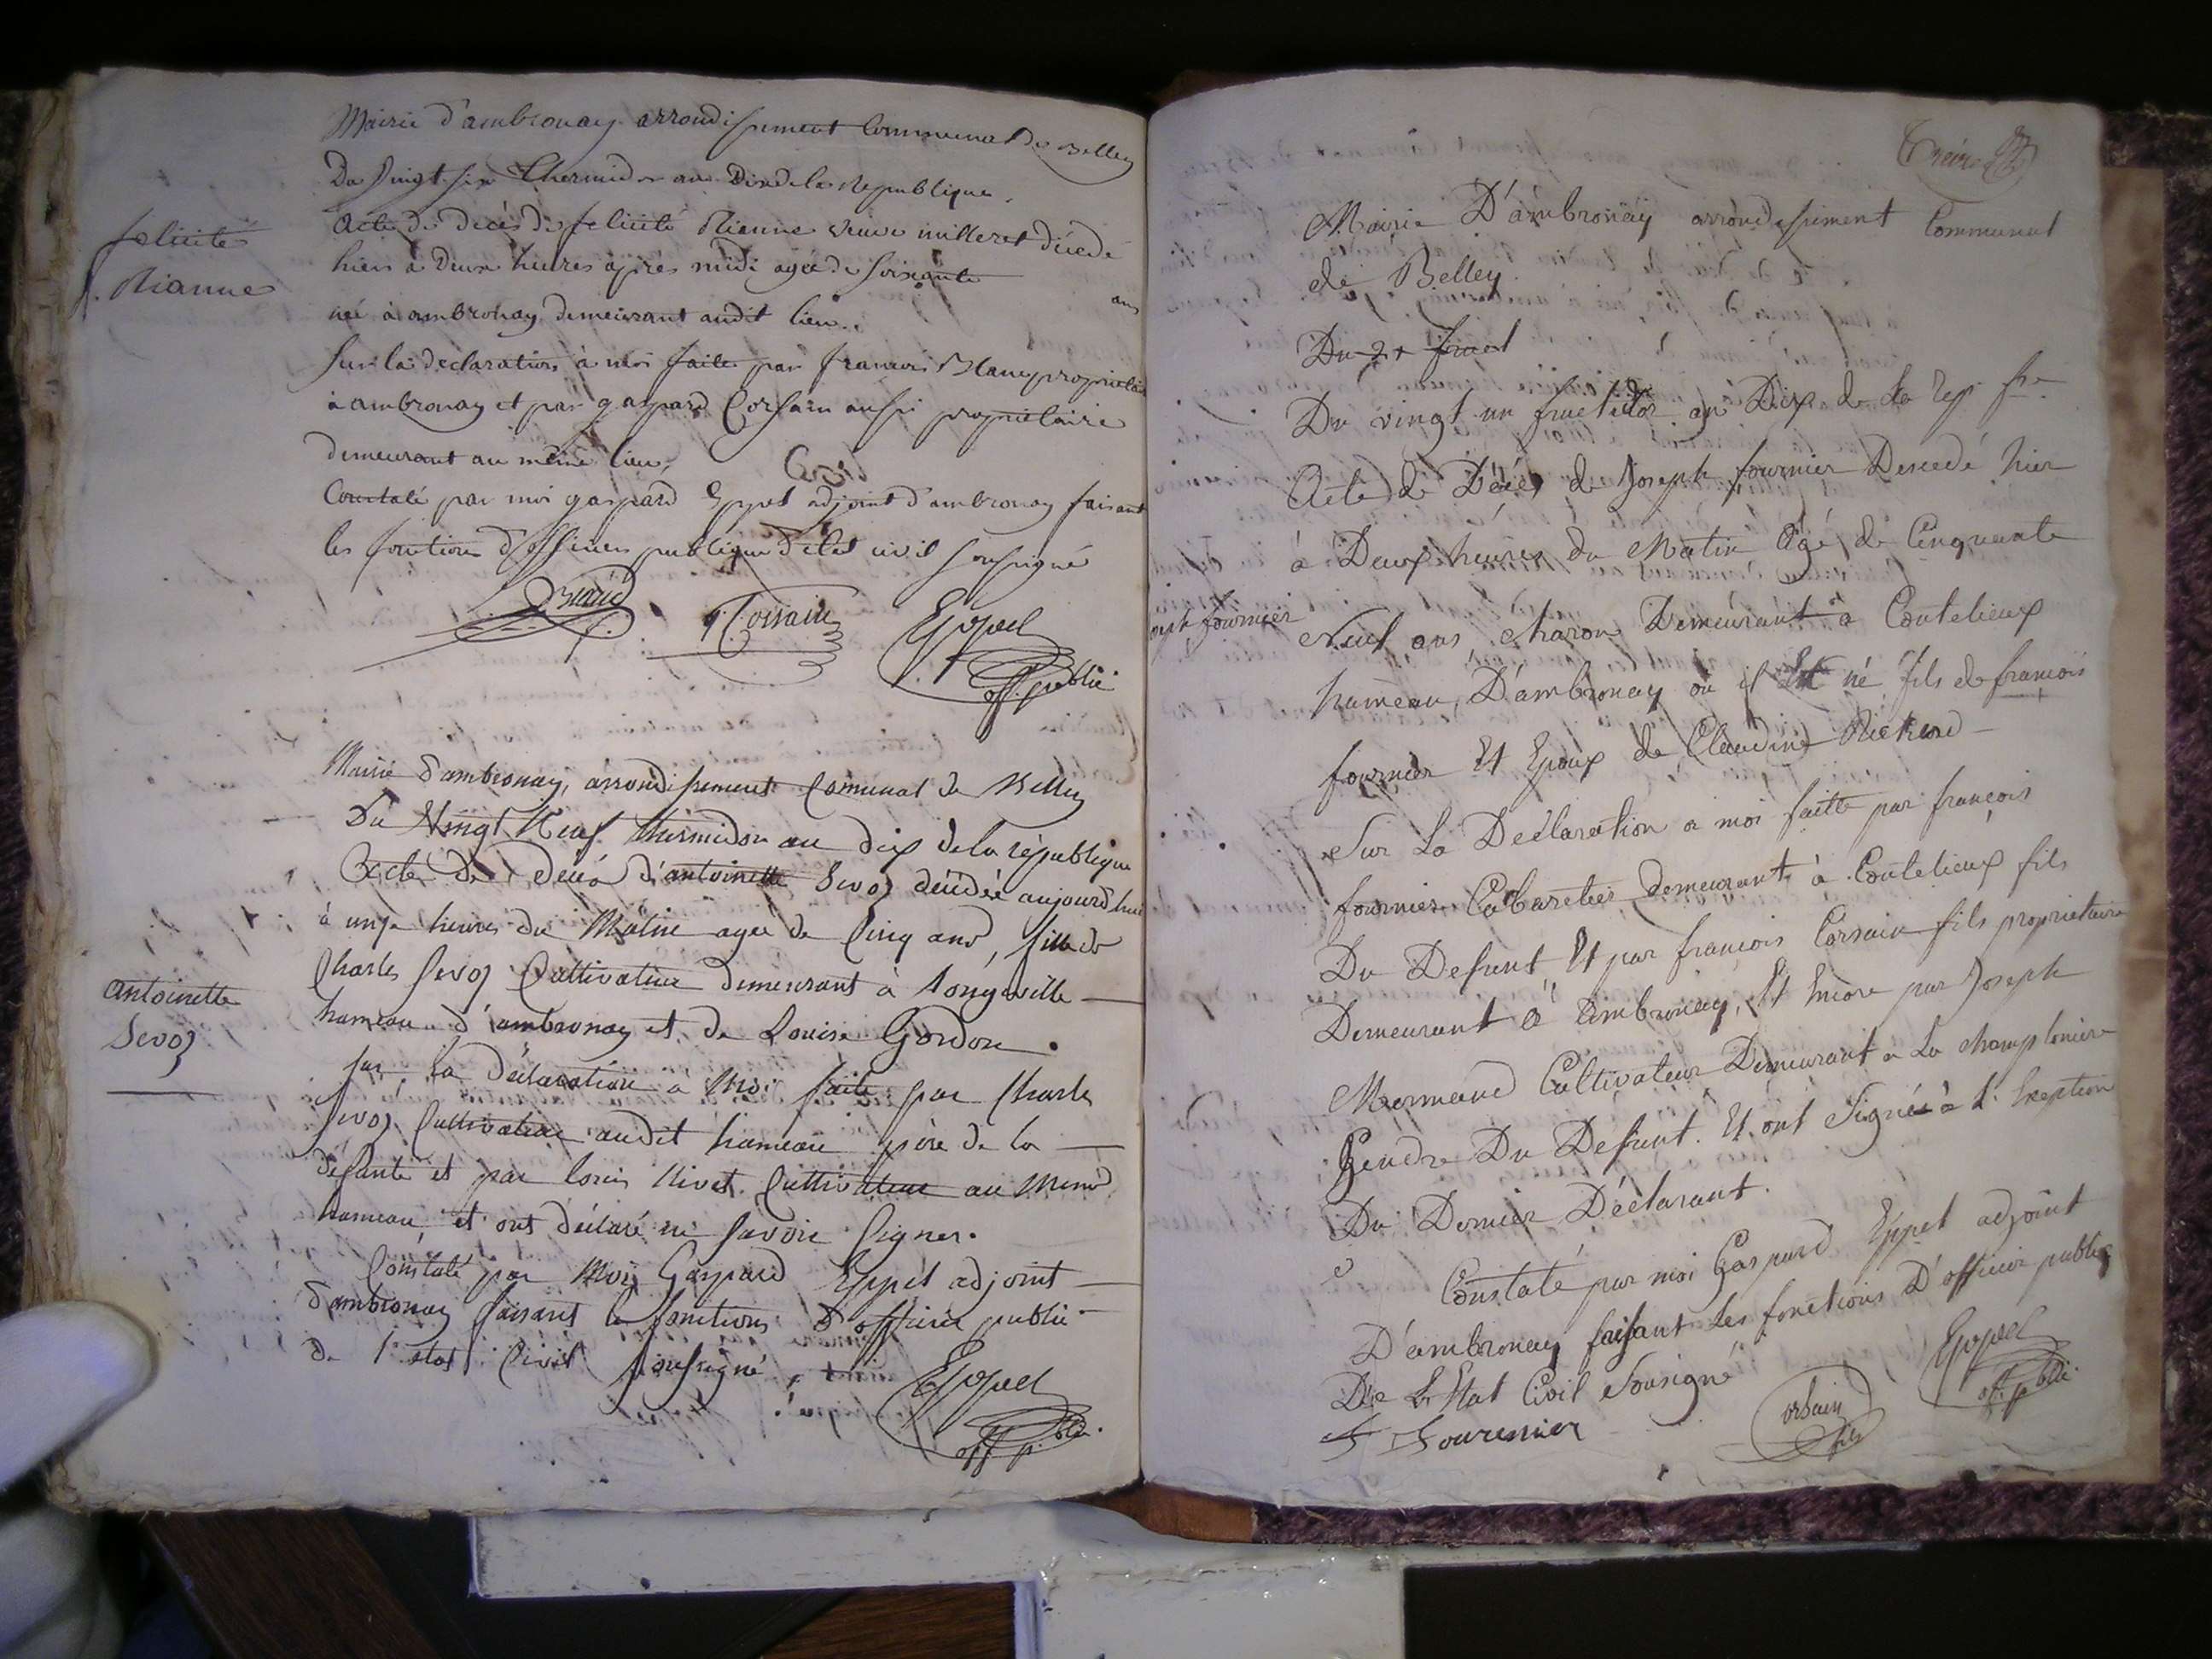 Mairie d'ambronay arrondissement Communal De Belley
Du Vingt six Thermidor an Dix de la Republique.
Acte de decès de felicité Rianne veuve milleret décedé
hier à Deux heures après midi agée de soixante
ans
née à ambronay demeurant audit lieu.
felicité
Rianne
Sur la declaration à moi faite par francois Blanc proprietaire
à ambronay et par gaspard Corsain aussi proprietaire
demeurant au même lieu,
Constaté par moi gaspard Eppel adjoint d'ambronay faisant
les fonctions d'officier publique d'etat civil soussigné
Corsain
Eppel
off. public
Mairie d'ambronay, arrondissement Comunal de Belley
Du Vingt Neuf thermidor an dix de la république
Acte de Decès d'antoinette Sevoz décédée aujourd'hui
à onze heures du Matin agée de Cinq ans, fille de
Charles Sevoz Cultivateur demeurant à Longeville
hameau d'ambronay et de Louise Gordon.
antoinette
Sevoz
sur la déclaration à Moi faite par Charles
Sevoz Cultivateur audit hameau père de la
défunte et par louis Nivet Cultivateur au Meme
hameau, et ont déclaré ne savoir signer.
Constaté par Moi Gaspard Eppel adjoint
d'ambronay faisant les fonctions d'officier public
de l'etat Civil soussigné
Eppel
off. p.blic.
Treize
Mairie D'ambronay arrondissement Communal
de Belley.
Du 21 fruct
Du vingt un fructidor an Dix de la rep fse
Acte de Décès de Joseph fournier Decedé hier
à Deux heures du Matin Agé de Cinquante
oseph fournier
Neuf ans, charon Demeurant à Coutelieux
hameau, D'ambronay où il Est né fils de françois
fournier Et Epoux de Claudine Richerd
Sur La Déclaration a moi faitte par françois
fournier Cabaretier demeurant à Coutelieux fils
Du Defunt Et par francois Corsain fils proprietaire
Demeurant à ambronay, Et Encore par Joseph
Mermand Cultivateur Demeurant a La championiere
Gendre Du Defunt. Et ont Signé à L'Exeption
Du Dernier Déclarant.
Constaté par moi Gaspard Eppel adjoint
D'ambronay faisant Les fonctions D'officier public
De L'Etat Civil Sousigné
F Fournier
Corsain
fils
Eppel
off. p.blic.